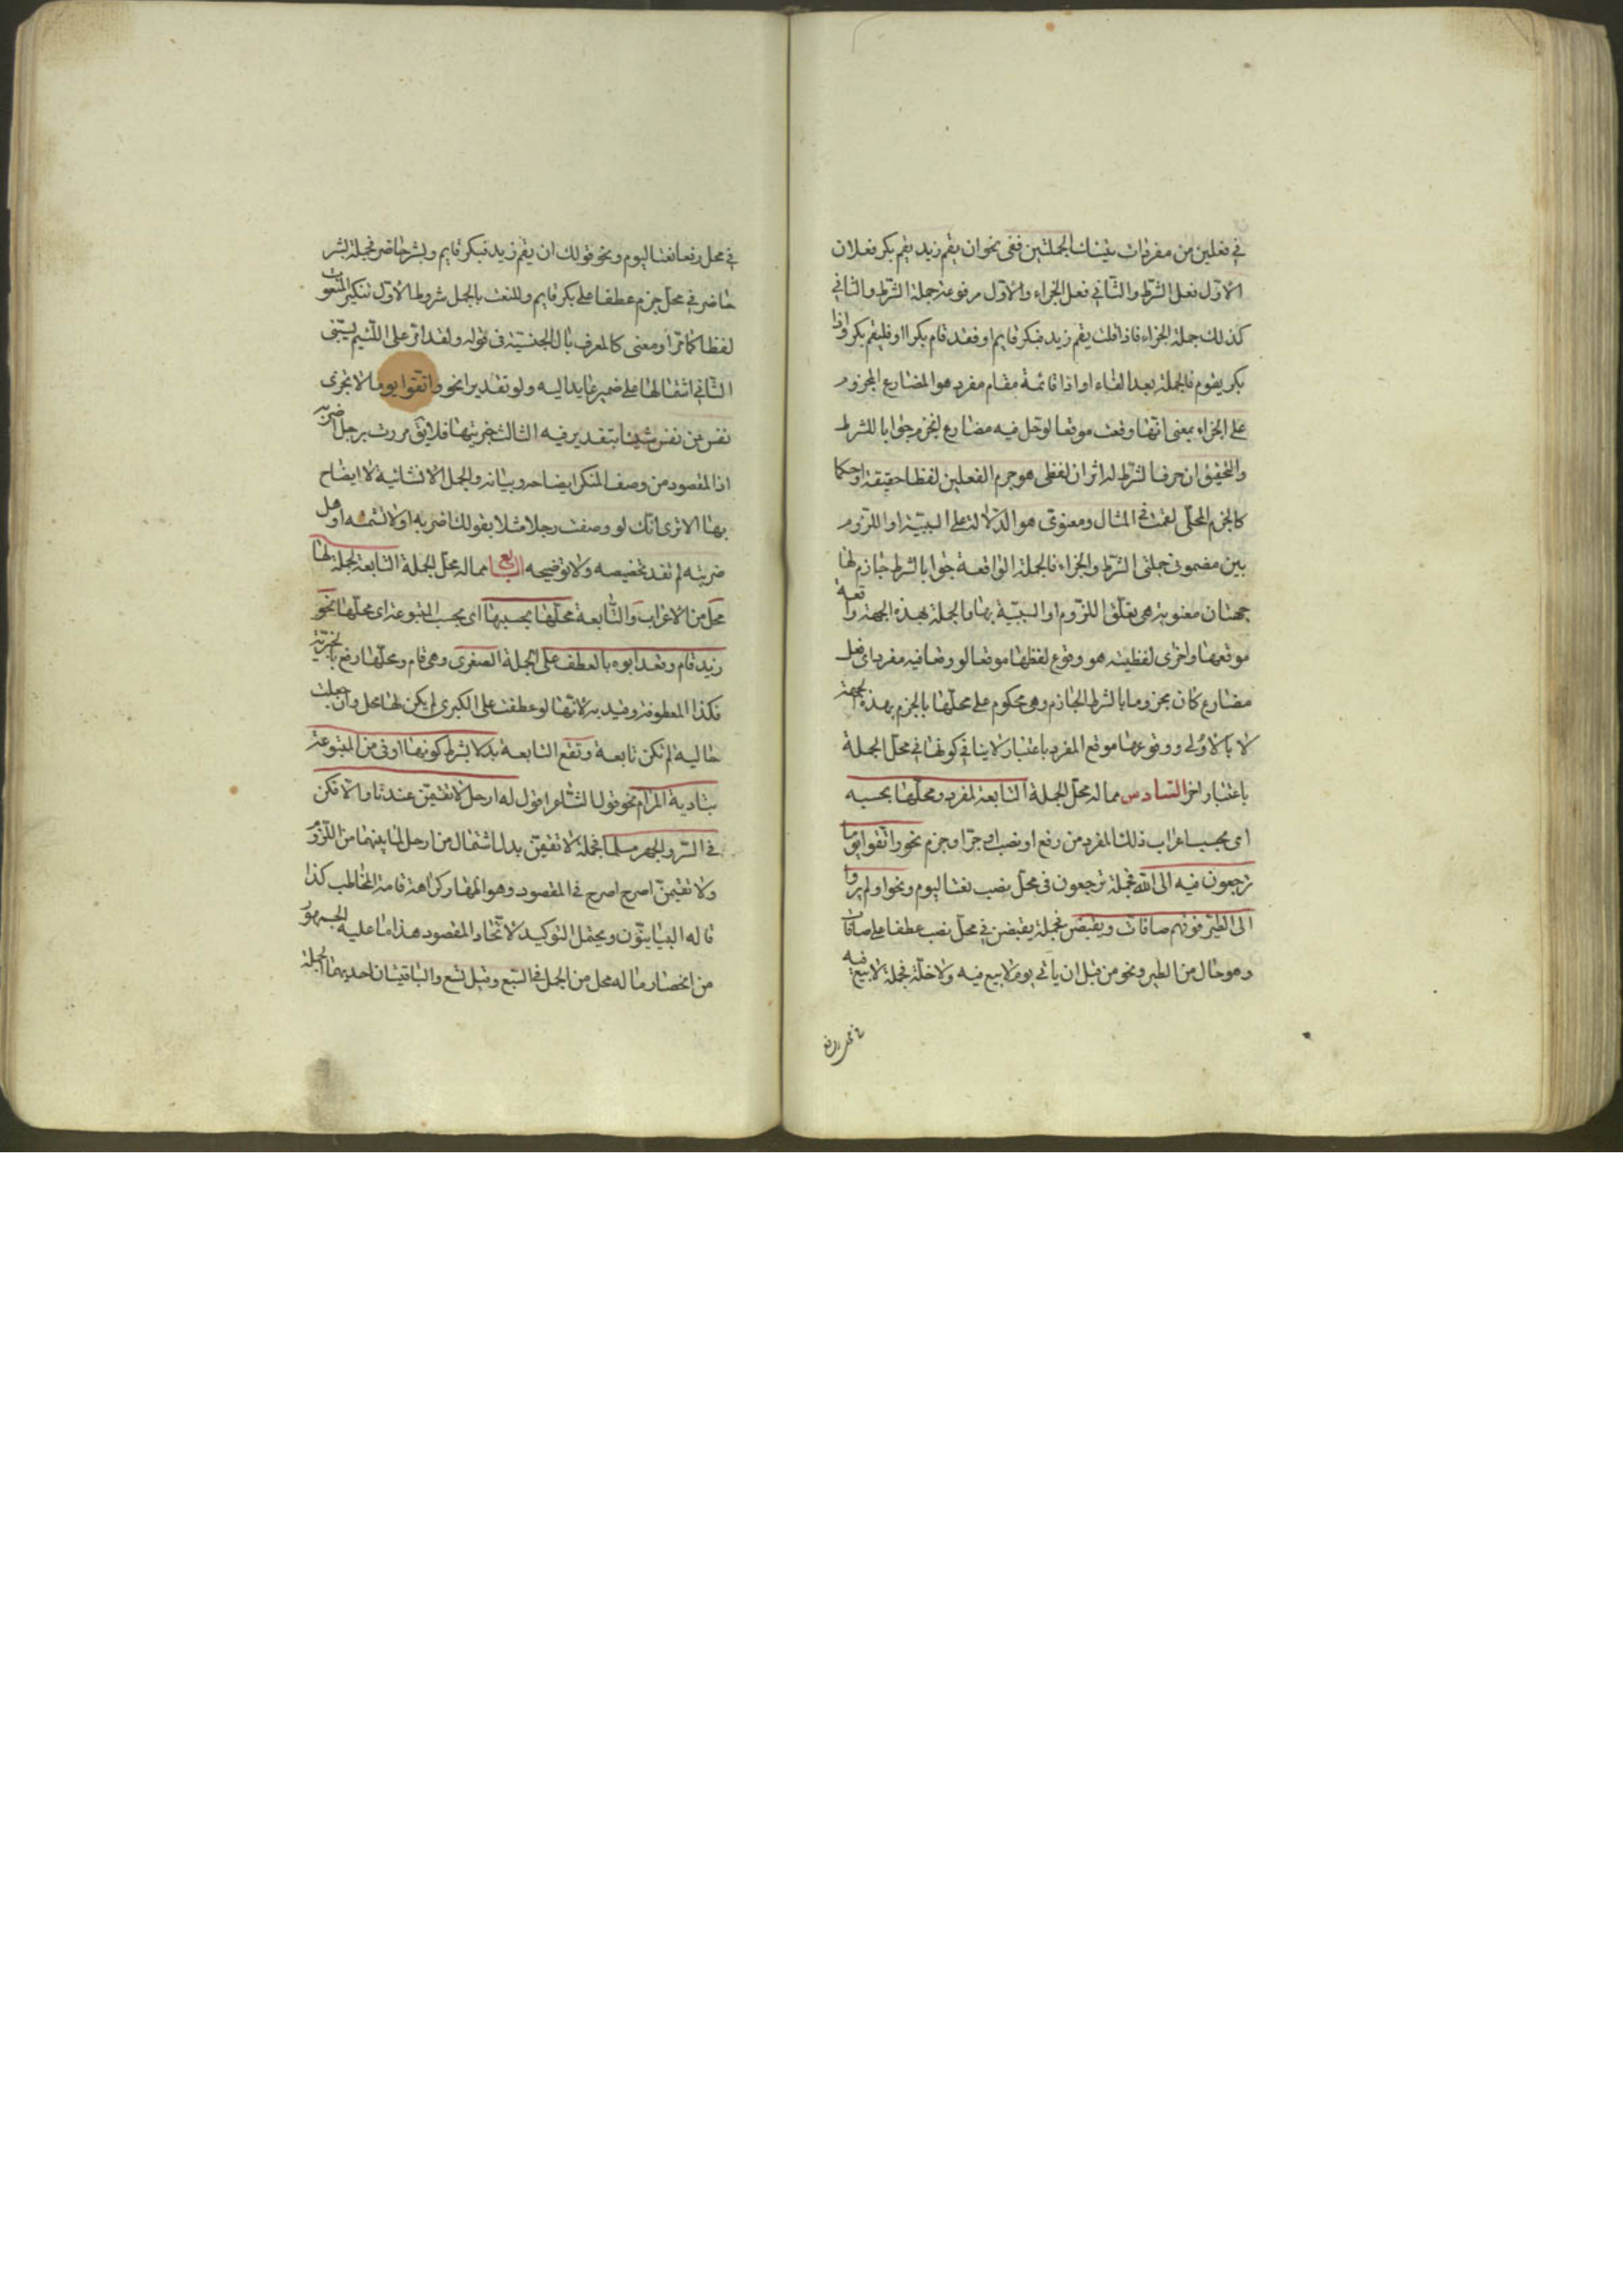 في فعلين من مفردات تينك الجملتين ففي نحو ان يقم زيد يقم بكر فعلان
الاول فعل الشرط والثاني فعل الجزاء والاول مرفوعه جملة الشرط والثاني
كذلك جملة الجزاء فاذا قلت يقم زيد فبكر قايم او فقد قام بكر او فليقم بكر واذا
بكر يقوم فالجملة بعد الفاء او اذا قائمة مقام مفرد هو المضارع المجزوم
على الجزاء بمعنى انها وقعت موقعا لو حل فيه مضارع لجزم جوابا للشرط
والتحقيق ان حرف الشرط له اثران لفظي هو جزم الفعلين لفظا حقيقة او حكما
كالجزم المحلي لقمت في المثال ومعنوي هو الدلالة على السببية او اللزوم
بين مضموني جملتي الشرط والجزاء فالجملة الواقعة جوابا لشرط جازم لها
جهتان معنوية هي تعلق اللزوم او السببية بها والجملة بهذه الجهة واقعة
موقعها واخرى لفظية هو وقوع لفظها موقعا لو وضع فيه مفرد اي فعل
مضارع كان مجزوما بالشرط الجازم وهي محكوم على محلها بالجزم بهذه الجهة
لا بالاولى ووقوعها موقع المفرد باعتبار لا ينافي كونها في محل الجملة
باعتبار اخر السادس مما له محل الجملة التابعة لمفرد ومحلها بحسبه
اي بحسب اعراب ذلك المفرد من رفع او نصب او جر او جزم نحو واتقوا يوما
ترجعون فيه الى الله فجملة ترجعون في محل نصب نعتا ليوم ونحو اولم يروا
الى الطير فوقهم صافات ويقبضن فجملة يقبضن في محل نصب عطفا على صافات
وهو حال من الطير ونحو من قبل ان ياتي يوم لا بيع فيه ولا خلة فجملة لا بيع فيه
في محل رفع
في محل رفع نعتا ليوم ونحو قولك ان يقم زيد فبكر قايم وبشر حاضر فجملة بشر
حاضر في محل جزم عطفا على بكر قايم وللنعت بالجمل شروط الاول تنكير المنعوت
لفظا كما مر او معنى كالمعرف بال الجنسية في قوله ولقد امر على اللئيم يسبني
الثاني اشتمالها على ضمير عايد اليه ولو تقديرا نحو واتقوا يوما لا تجزى
نفس عن نفس شيئا بتقدير فيه الثالث خبريتها فلا يق مررت برجل اضربه
اذ المقصود من وصف المنكر ايضاحه وبيانه والجمل الانشائية لا ايضاح
بها الا ترى انك لو وصفت رجلا مثلا بقولك اضربه او لا تشتمه او هل
ضربته لم تفد تخصيصه ولا توضيحه السابع مما له محل الجملة التابعة لجملة لها
محل من الاعراب والتابعة محلها بحسبها اي بحسب المتبوعة اي محلها نحو
زيد قام وقعد ابوه بالعطف على الجملة الصغرى وهي قام ومحلها رفع بالخبرية
فكذا المعطوفة وقيد به لانها لو عطفت على الكبرى لم يكن لها محل وان جعلت
حالية لم تكن تابعة وتقع التابعة بدلا بشرط كونها اوفى من المتبوعة
بتادية المرام نحو قول الشاعر اقول له ارحل لا تقيمن عندنا والا فكن
في السر والجهر مسلما فجملة لا تقيمن بدل اشتمال من ارحل لما بينهما من اللزوم
ولا تقيمن اصرح في المقصود وهو اظهار كراهة اقامة المخاطب كذا
قاله البيانيون ويحتمل التوكيد لاتحاد المقصود هذا ما عليه الجمهور
من انحصار ما له محل من الجمل في السبع وقيل تسع والباقيتان احديهما الجملة